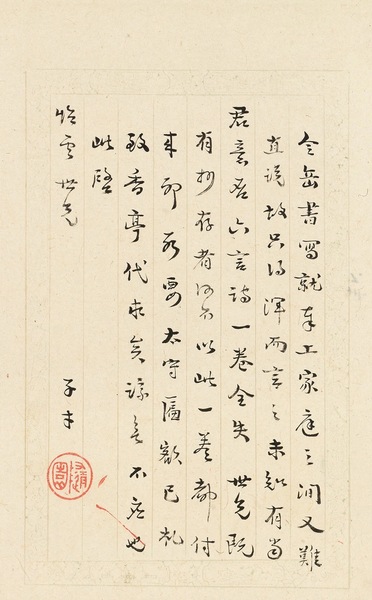 令岳書寫就奉上家庭之間又難
直說故只得渾而言之未知有當
君意否六言詩一卷全失 世兄既
有抄存者何不以此一卷都付
來 要太守匾額已札
致香亭代求矣諒無不應也
此覆
世兄
子才
隨園